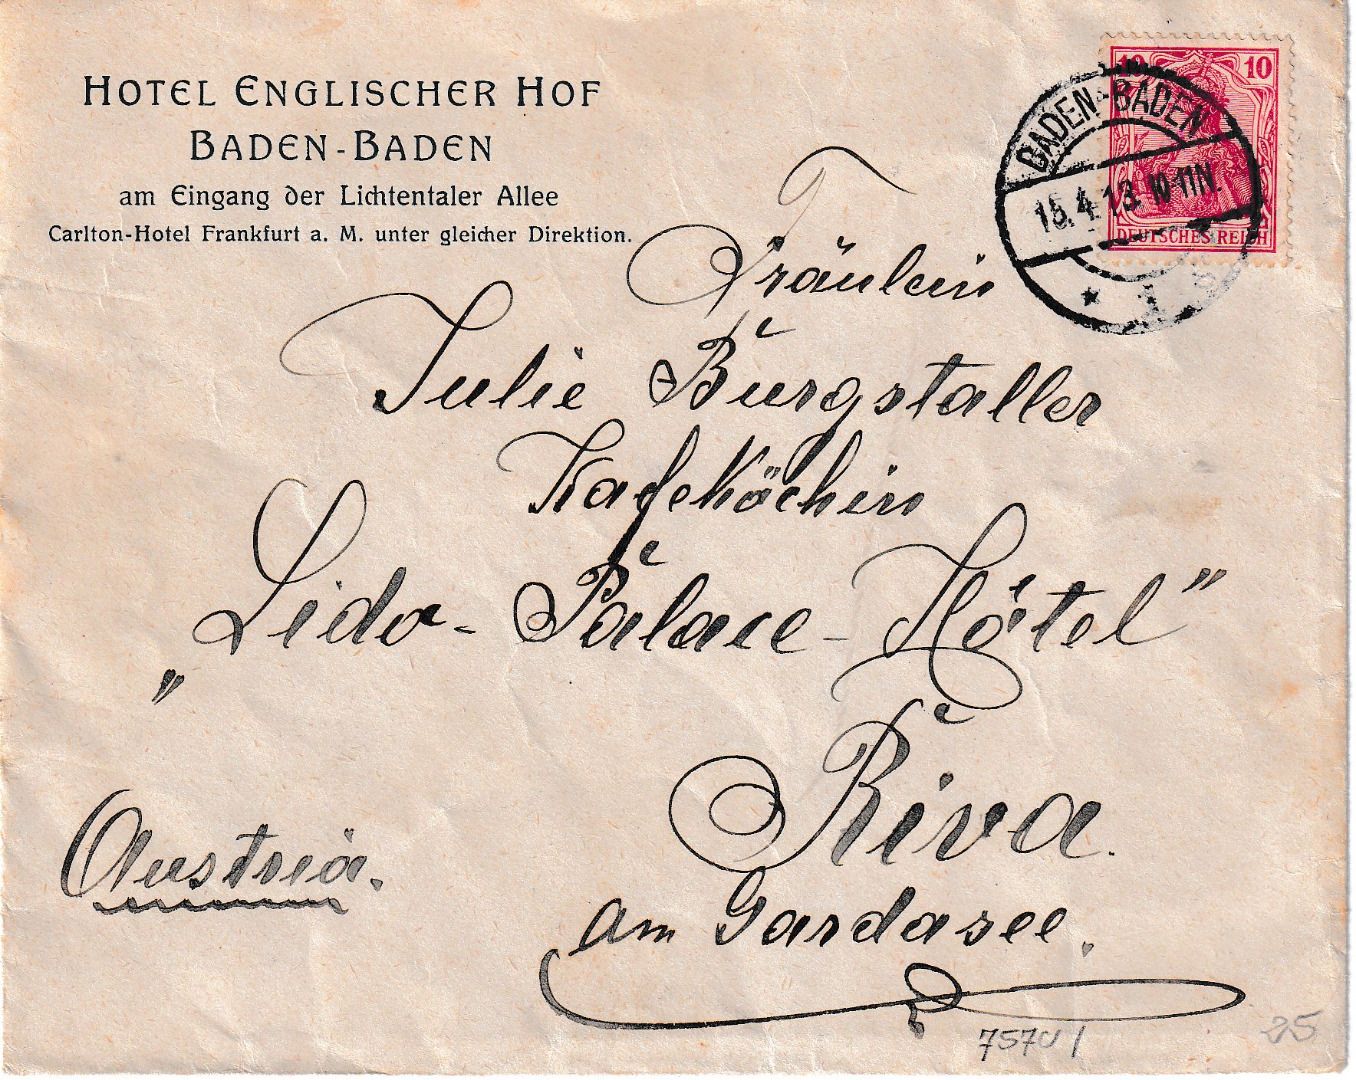 HOTEL ENGLISCHER HOF
BADEN-BADEN
am Eingang der Lichtentaler Allee
Carlton-Hotel Frankfurt a. M. unter gleicher Direktion.
10 10
DEUTSCHES REICH
BADEN-BADEN
15.4.13. 10-11N.
Fräulein
Julie Burgstaller
Kafeköchin
„Lido-Palace-Hôtel"
Riva.
am Gardasee.
Austria.
25